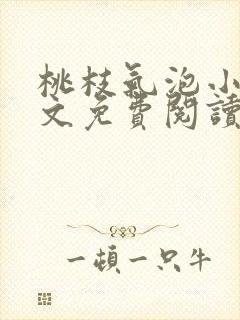 桃枝氣泡小
文免費閱讀
一頓一只牛